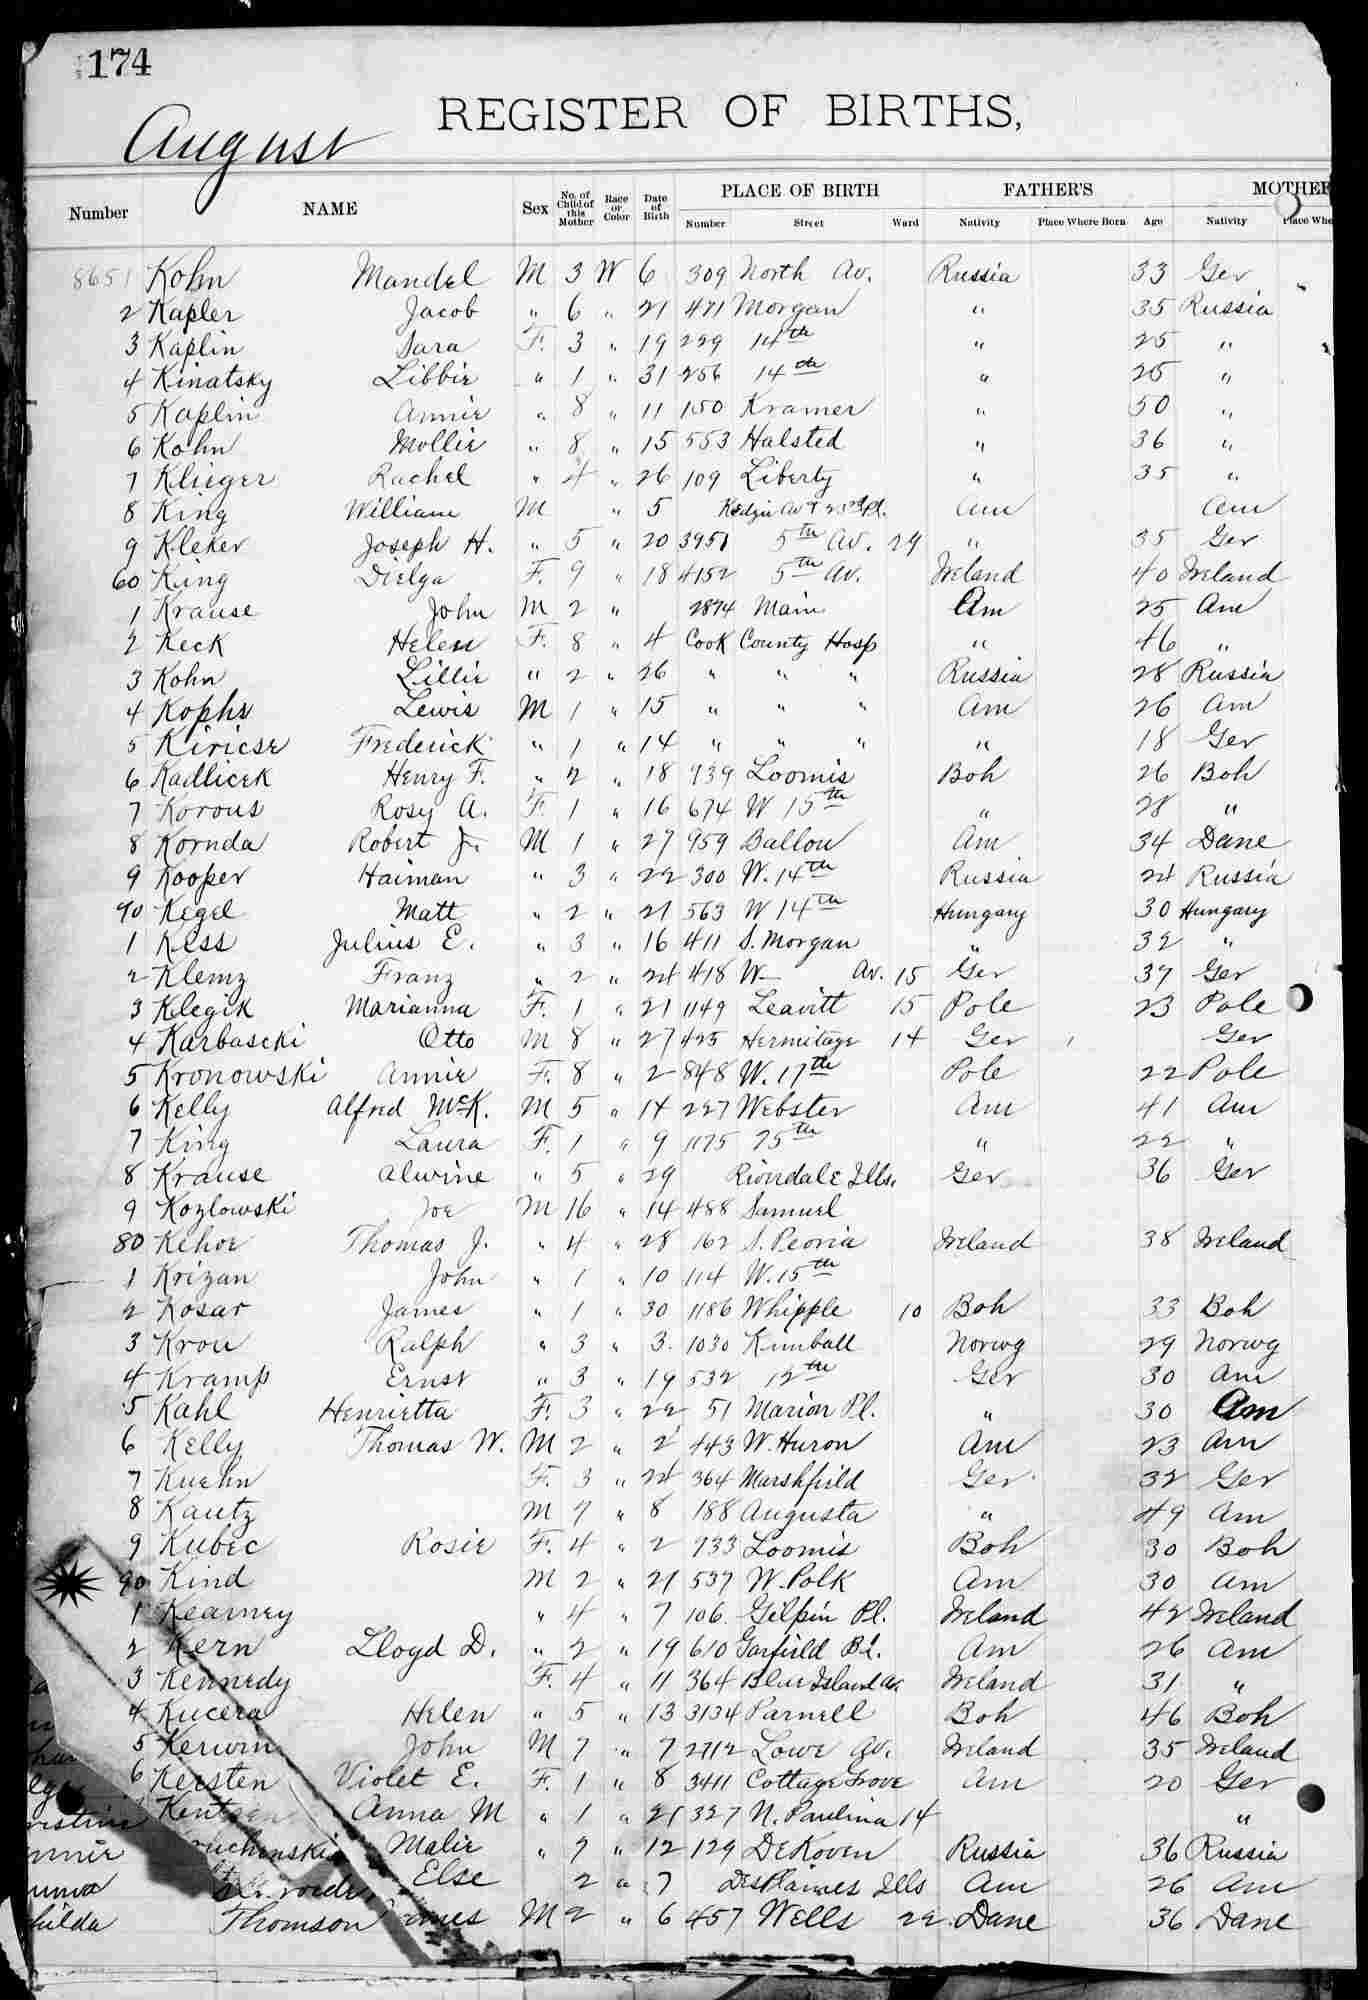 174
August
REGISTER OF BIRTHS,
PLACE OF BIRTH FATHER'S MOTHER
Number NAME Sex No. of Child of this Mother Race or Color Date of Birth Number Street Ward Nativity Place Where Born Age Nativity Place Whe
8651 Kohn Mandel M 3 W 6 309 North Av. Russia 33 Ger
2 Kapler Jacob " 6 " 21 471 Morgan " 35 Russia
3 Kaplin Sara F. 3 " 19 229 14th " 25 "
4 Kinatsky Libbie " 1 " 31 256 14th " 25 "
5 Kaplin Annie " 8 " 11 150 Kramer " 50 "
6 Kohn Mollie " 8 " 15 553 Halsted " 36 "
7 Klieger Rachel " 4 " 26 109 Liberty " 35 "
8 King William M " 5 Kedzie Av & 23rd Pl. Am Am
9 Kleker Joseph H. " 5 " 20 3951 5th Av. 29 " 35 Ger
60 King Dielga F. 9 " 18 4152 5th Av. Ireland 40 Ireland
1 Krause John M 2 " 2874 Main Am 25 Am
2 Keck Helen F. 8 " 4 Cook County Hosp " 46 "
3 Kohn Lillie " 2 " 26 " " " Russia 28 Russia
4 Kophs Lewis M 1 " 15 " " " Am 26 Am
5 Kiriese Frederick " 1 " 14 " " " " 18 Ger
6 Kadlicek Henry F. " 2 " 18 939 Loomis Boh 26 Boh
7 Korous Rosy A. F. 1 " 16 674 W 15th " 28 "
8 Kornda Robert J. M 1 " 27 959 Ballou Am 34 Dane
9 Kooper Haiman " 3 " 22 300 W. 14th Russia 24 Russia
70 Kegel Matt " 2 " 21 563 W 14th Hungary 30 Hungary
1 Kess Julius E. " 3 " 16 411 S. Morgan " 32 "
2 Klemz Franz " 2 " 24 418 W— Av. 15 Ger 37 Ger
3 Klegik Marianna F. 1 " 21 1149 Leavitt 15 Pole 23 Pole
4 Karbascki Otto M 8 " 27 425 Hermitage 14 Ger Ger
5 Kronowski Annie F. 8 " 2 848 W. 17th Pole 22 Pole
6 Kelly Alfred McK. M 5 " 14 227 Webster Am 41 Am
7 King Laura F. 1 " 9 1175 75th " 22 "
8 Krause Alwine " 5 " 29 Riverdale Ills. Ger 36 Ger
9 Kozlowski Joe M 16 " 14 488 Samuel
80 Kehoe Thomas J. " 4 " 28 162 S. Peoria Ireland 38 Ireland
1 Krizan John " 1 " 10 114 W. 15th
2 Kosar James " 1 " 30 1186 Whipple 10 Boh 33 Boh
3 Krou Ralph " 3 " 3. 1030 Kimball Norwg 29 Norwg
4 Kramp Ernst " 3 " 19 532 12th Ger 30 Am
5 Kahl Henrietta F. 3 " 22 51 Marion Pl. " 30 Am
6 Kelly Thomas W. M 2 " 2 443 W. Huron Am 23 Am
7 Kuehn F. 3 " 24 364 Marshfield Ger 32 Ger
8 Kautz M 7 " 8 188 Augusta " 49 Am
9 Kubec Rosie F. 4 " 2 733 Loomis Boh 30 Boh
90 Kind M 2 " 21 537 W. Polk Am 30 Am
1 Kearney " 4 " 7 106. Gilpin Pl. Ireland 42 Ireland
2 Kern Lloyd D. " 2 " 19 610 Garfield Bd. Am 26 Am
3 Kennedy F. 4 " 11 364 Blue Island Av. Ireland 31 "
4 Kucera Helen " 5 " 13 3134 Parnell Boh 46 Boh
5 Kerwin John M 7 " 7 2712 Lowe Av. Ireland 35 Ireland
6 Kersten Violet E. F. 1 " 8 3411 Cottage Grove Am 20 Ger
Anna M " 1 " 21 327 N. Paulina 14 "
uchinski Malie " 7 " 12 129 DeKoven Russia 36 Russia
Else 2 " 7 DesPlaines Ills Am 26 Am
hilda Thomson M 2 " 6 457 Wells 22 Dane 36 Dane